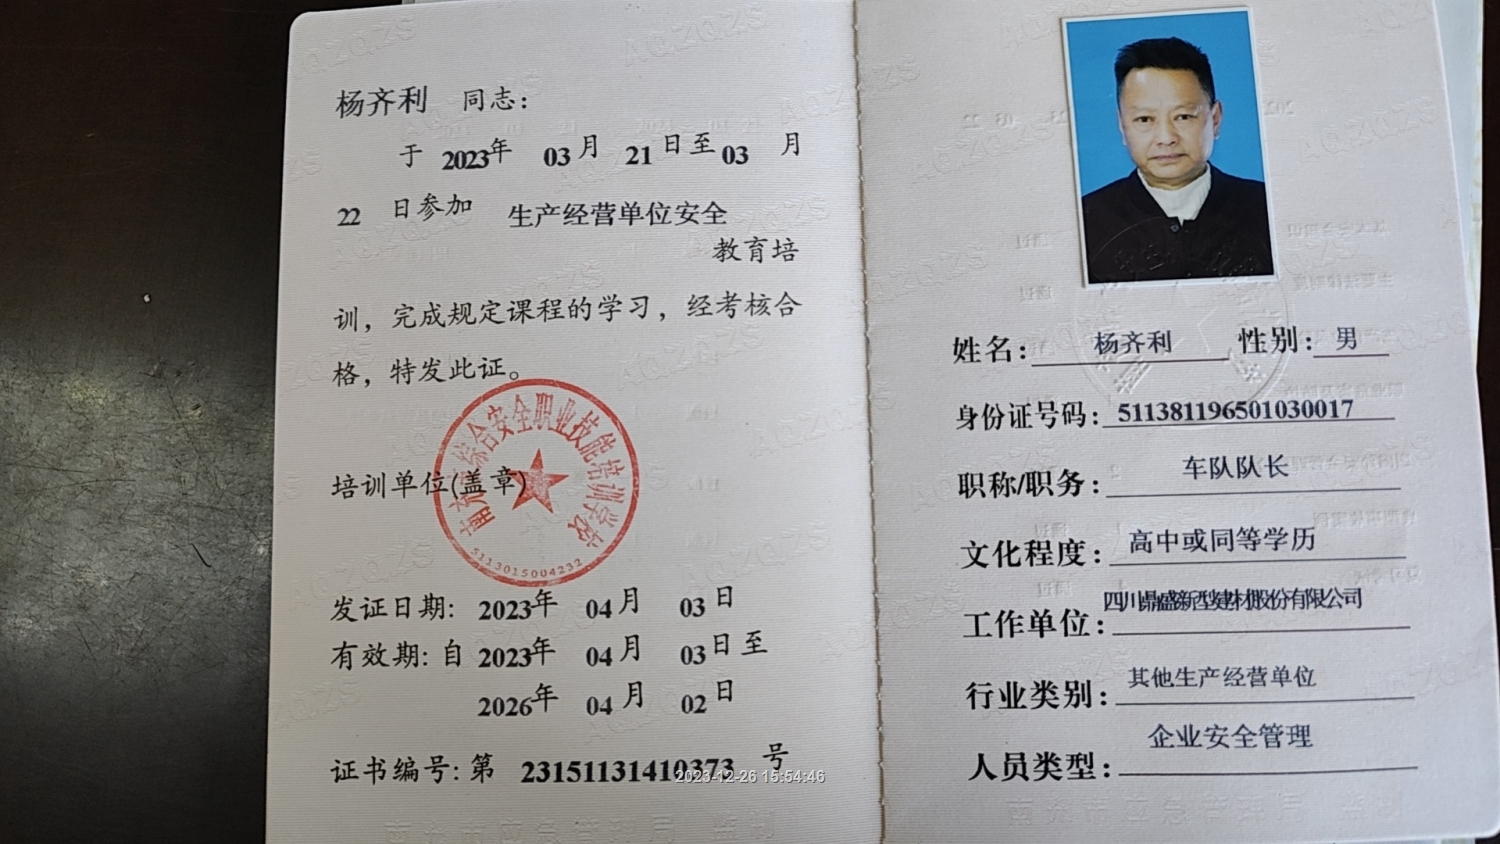 杨齐利 同志：
于 2023年 03月 21日至03 月
22 日参加 生产经营单位安全
教育培
训，完成规定课程的学习，经考核合
格，特发此证。
培训单位(盖章)
综合安全职业技能培训学校
5113015004232
发证日期: 2023年 04月 03日
有效期: 自 2023年 04月 03日至
2026年 04月 02日
证书编号: 第 23151131410373 号
2023-12-26 15:54:46
姓名: 杨齐利 性别: 男
身份证号码: 511381196501030017
职称/职务: 车队队长
文化程度: 高中或同等学历
工作单位: 四川鼎盛新型建材股份有限公司
行业类别: 其他生产经营单位
人员类型: 企业安全管理